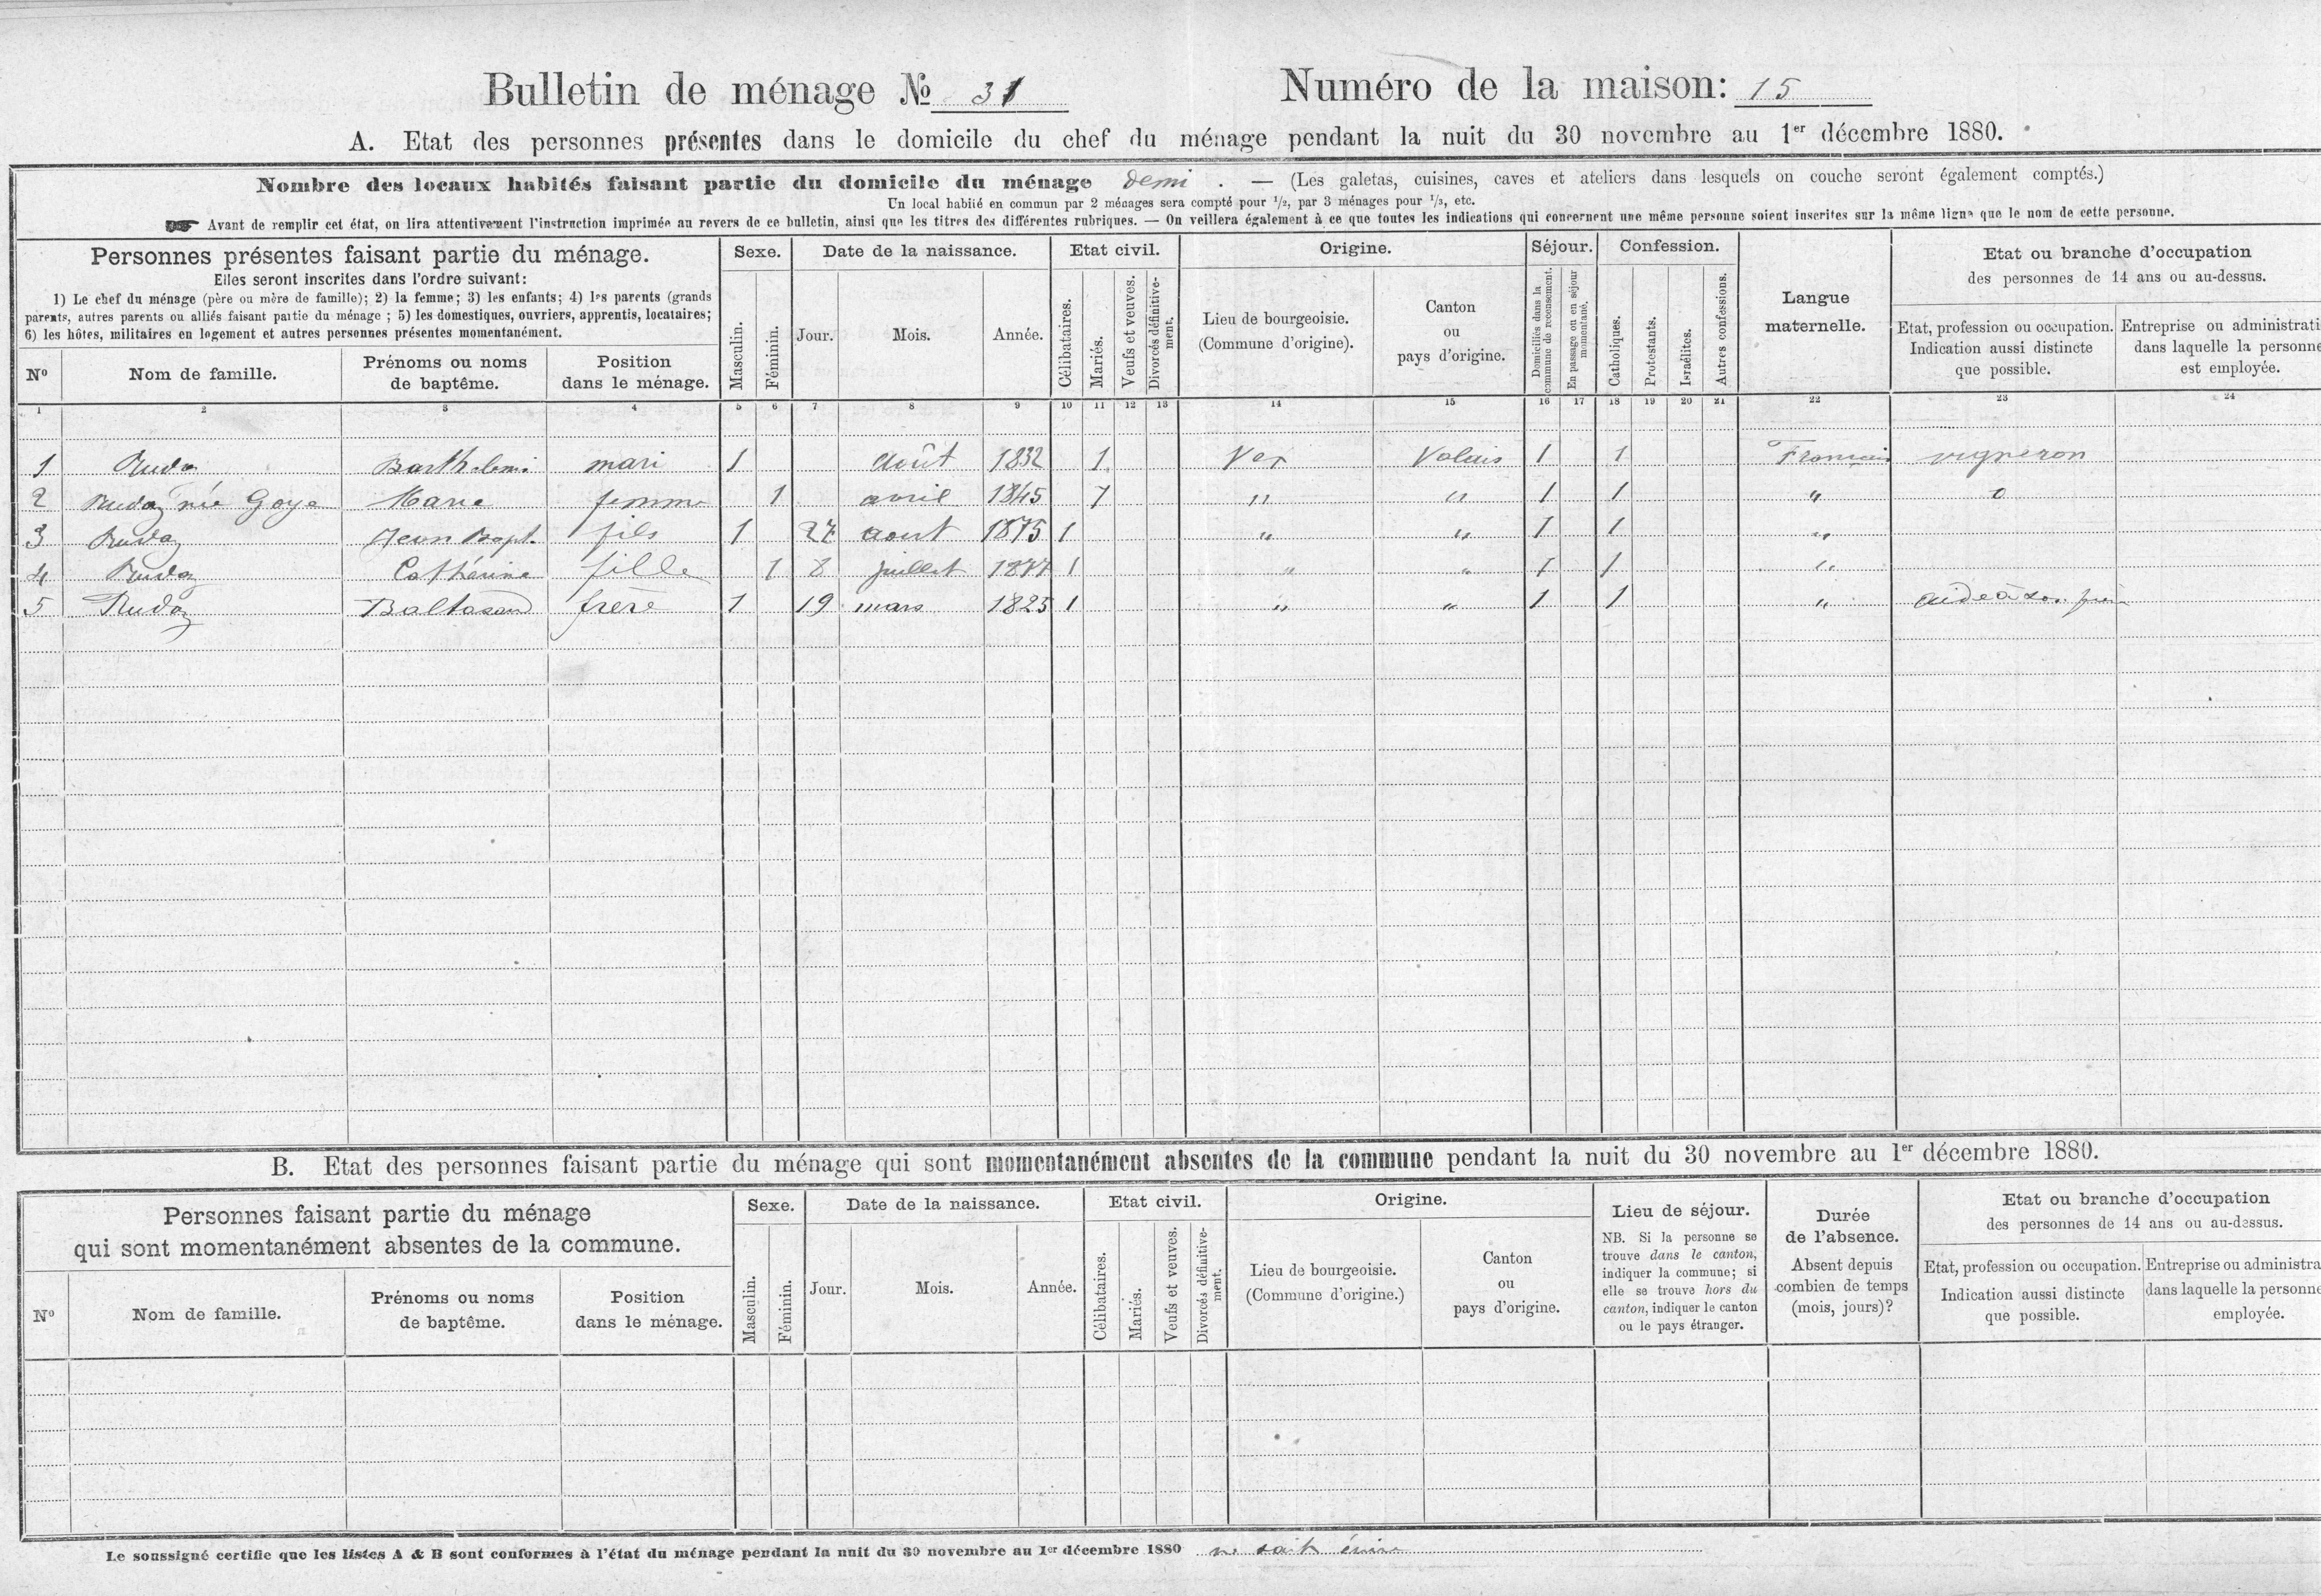 Bulletin de ménage № 31
Numéro de la maison: 15
A. Etat des personnes présentes dans le domicile du chef du ménage pendant la nuit du 30 novembre au 1er décembre 1880.
Nombre des locaux habités faisant partie du domicile du ménage demi. — (Les galetas, cuisines, caves et ateliers dans lesquels on couche seront également comptés.)
Un local habité en commun par 2 ménages sera compté pour 1/2, par 3 ménages pour 1/3, etc.
☛ Avant de remplir cet état, on lira attentivement l'instruction imprimée au revers de ce bulletin, ainsi que les titres des différentes rubriques. — On veillera également à ce que toutes les indications qui concernent une même personne soient inscrites sur la même ligne que le nom de cette personne.
Personnes présentes faisant partie du ménage.
Elles seront inscrites dans l'ordre suivant:
1) Le chef du ménage (père ou mère de famille); 2) la femme; 3) les enfants; 4) les parents (grands
parents, autres parents ou alliés faisant partie du ménage; 5) les domestiques, ouvriers, apprentis, locataires;
6) les hôtes, militaires en logement et autres personnes présentes momentanément.
No
Nom de famille.
Prénoms ou noms
de baptême.
Position
dans le ménage.
Sexe.
Masculin.
Féminin.
Date de la naissance.
Jour.
Mois.
Année.
Etat civil.
Célibataires.
Mariés.
Veufs et veuves.
Divorcés définitive-
ment.
Origine.
Lieu de bourgeoisie.
(Commune d'origine).
Canton
ou
pays d'origine.
Séjour.
Domiciliés dans la
commune de recensement.
En passage ou en séjour
momentané.
Confession.
Catholiques.
Protestants.
Israélites.
Autres confessions.
Langue
maternelle.
Etat ou branche d'occupation
des personnes de 14 ans ou au-dessus.
Etat, profession ou occupation.
Indication aussi distincte
que possible.
Entreprise ou administrati
dans laquelle la personne
est employée.
1 2 3 4 5 6 7 8 9 10 11 12 13 14 15 16 17 18 19 20 21 22 23 24
1 Rudaz Barthelemi mari 1 Août 1832 1 Vex Valais 1 1 Français vigneron
2 Rudaz née Goye Marie femme 1 avril 1845 1 " " 1 1 " 0
3 Rudaz Jean Bapt. fils 1 27 aout 1875 1 " " 1 1 "
4 Rudaz Cathérine fille 1 8 juillet 1877 1 " " 1 1 "
5 Rudaz Baltasard frère 1 19 mars 1825 1 " " 1 1 " aide à son frère
B. Etat des personnes faisant partie du ménage qui sont momentanément absentes de la commune pendant la nuit du 30 novembre au 1er décembre 1880.
Personnes faisant partie du ménage
qui sont momentanément absentes de la commune.
No
Nom de famille.
Prénoms ou noms
de baptême.
Position
dans le ménage.
Sexe.
Masculin.
Féminin.
Date de la naissance.
Jour.
Mois.
Année.
Etat civil.
Célibataires.
Mariés.
Veufs et veuves.
Divorcés définitive-
ment.
Origine.
Lieu de bourgeoisie.
(Commune d'origine.)
Canton
ou
pays d'origine.
Lieu de séjour.
NB. Si la personne se
trouve dans le canton,
indiquer la commune; si
elle se trouve hors du
canton, indiquer le canton
ou le pays étranger.
Durée
de l'absence.
Absent depuis
combien de temps
(mois, jours)?
Etat ou branche d'occupation
des personnes de 14 ans ou au-dessus.
Etat, profession ou occupation.
Indication aussi distincte
que possible.
Entreprise ou administra
dans laquelle la personne
employée.
Le soussigné certifie que les listes A & B sont conformes à l'état du ménage pendant la nuit du 30 novembre au 1er décembre 1880 ne sait écrire